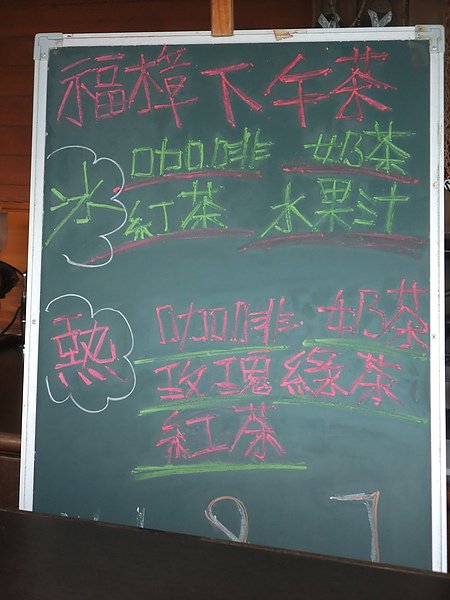 福樟下午茶
冰 咖啡 奶茶
紅茶 水果汁
熱 咖啡 奶茶
玫瑰綠茶
紅茶